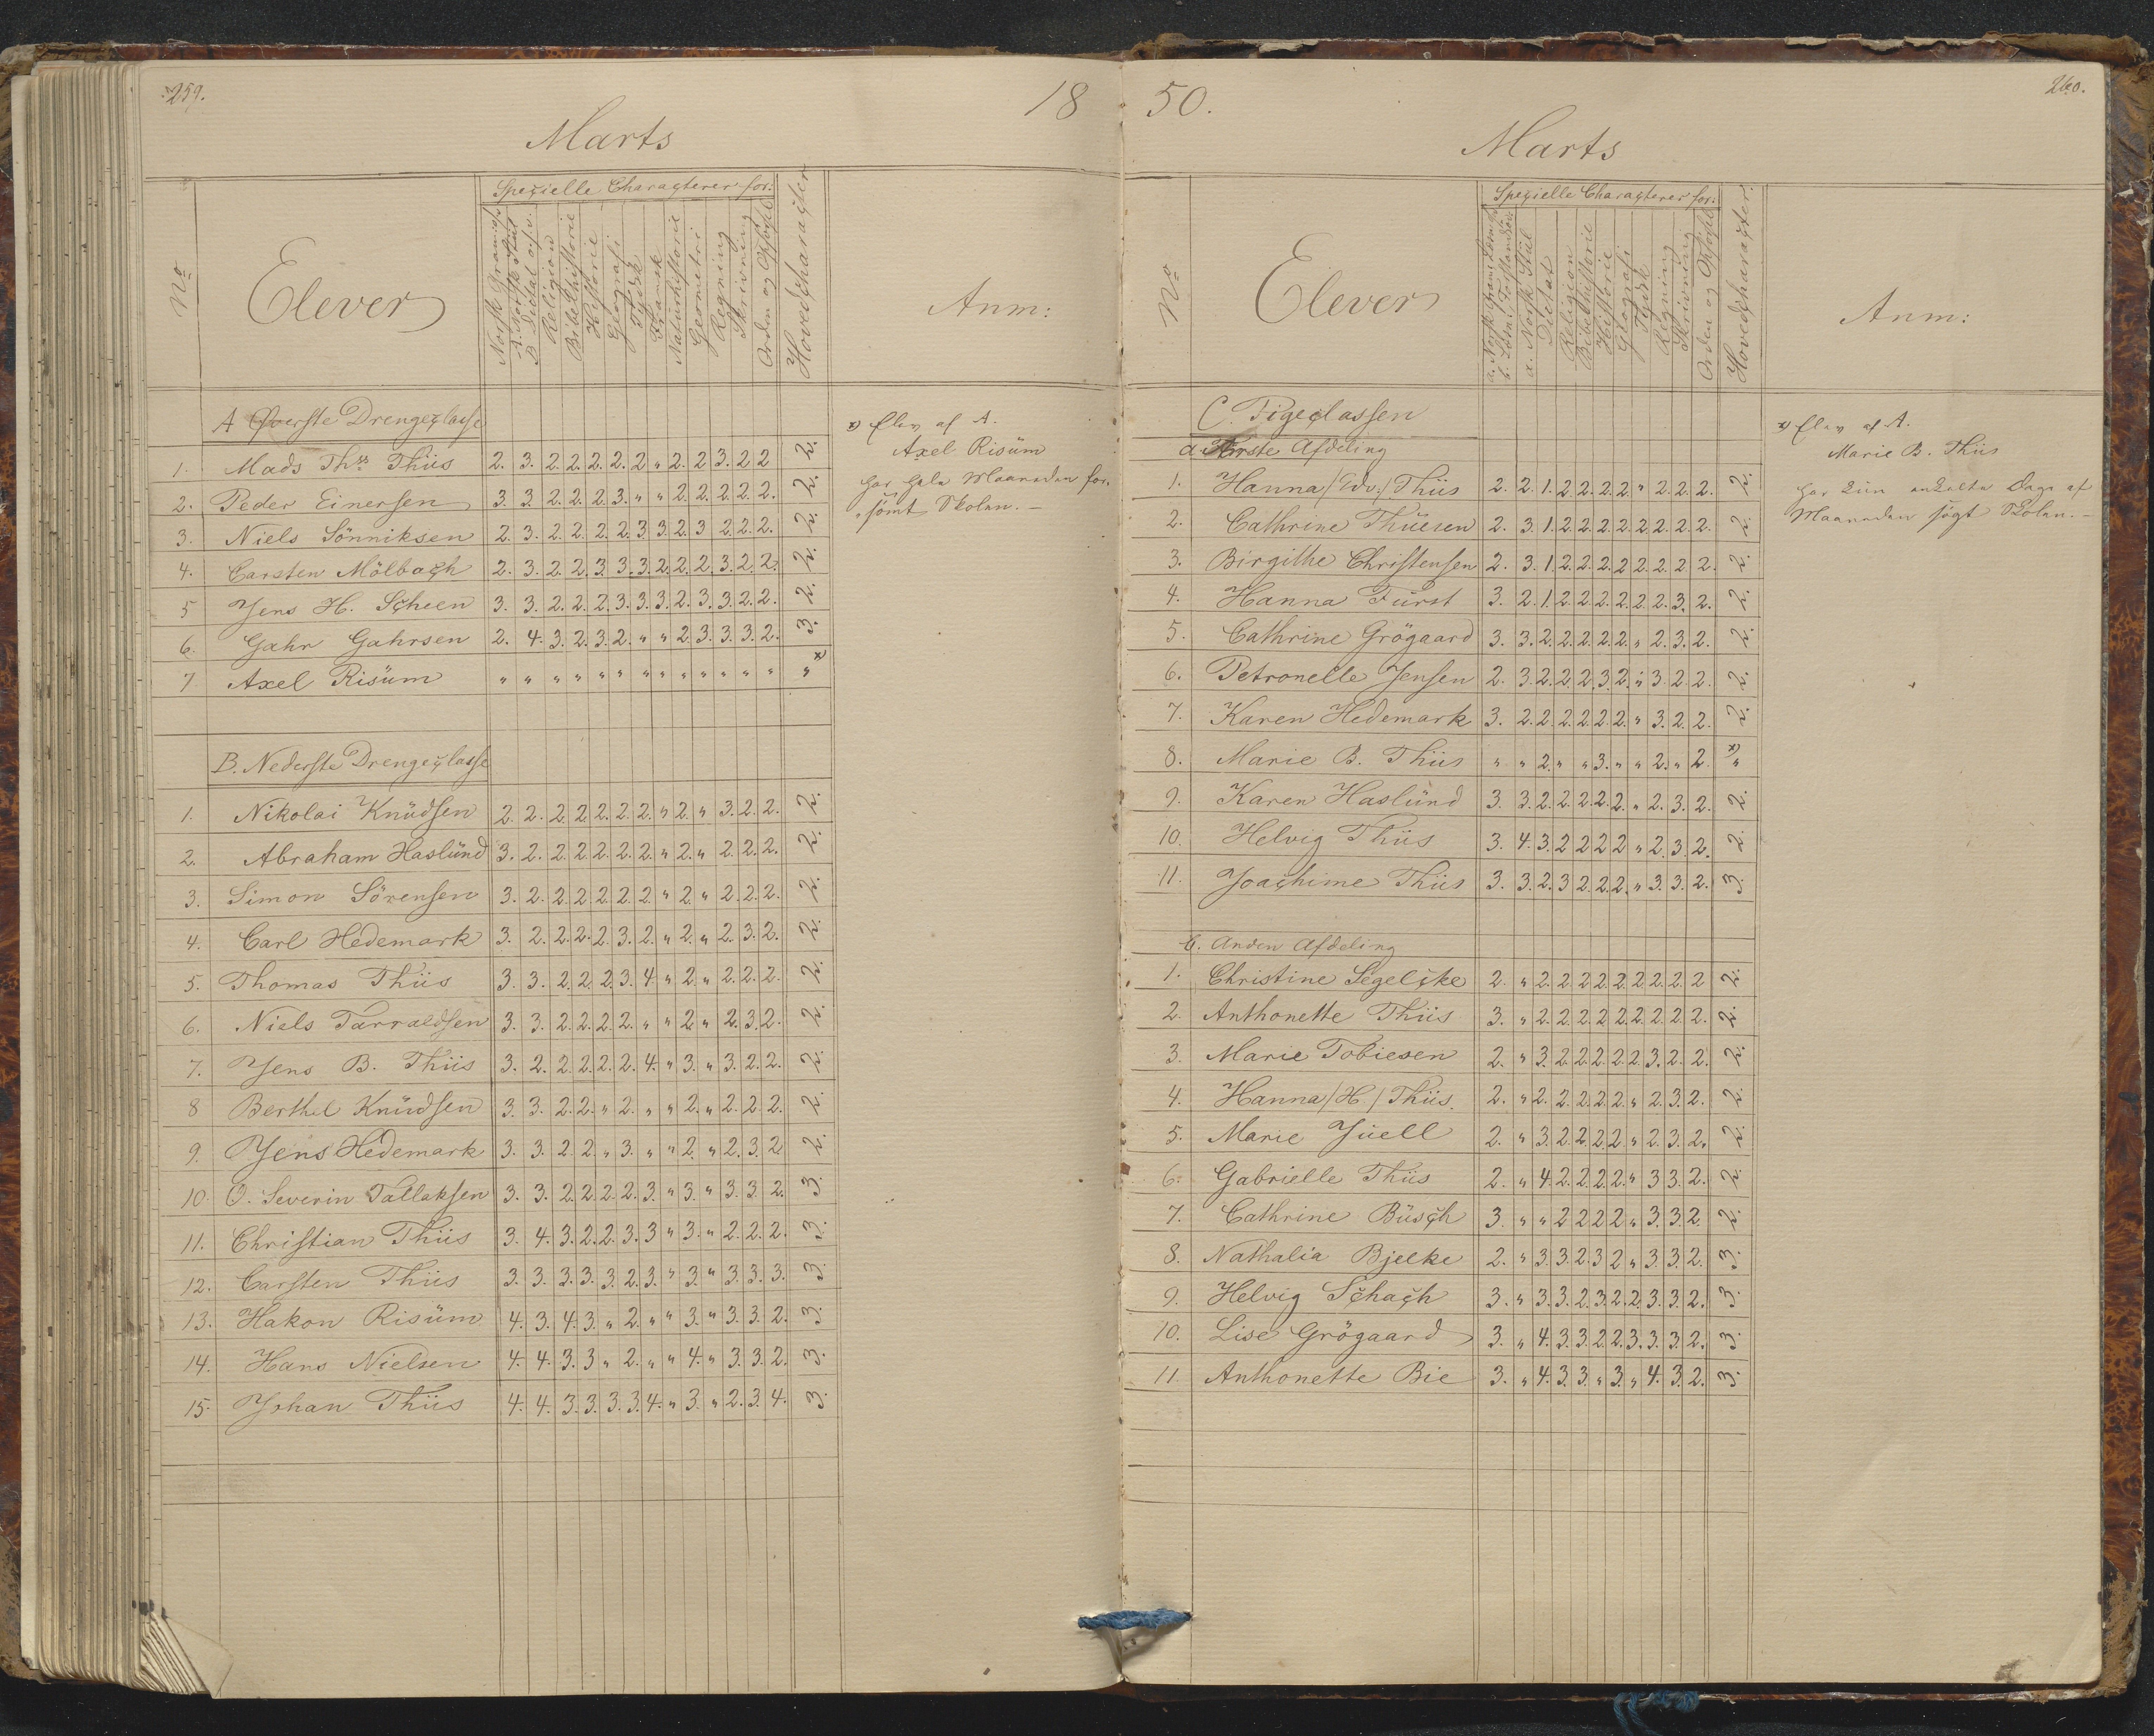 259.
18
Marts
No
Elever
Spezielle Characterer for:
Norsk Gramatik
A. Norsk Stiil
B. Dictat
Religion
Bibelhistorie
Historie
Geografi
Tydsk
Fransk
Naturhistorie
Geometri
Regning
Skrivning
Orden og Opførsel
Hovedcharacter
Anm:
A Øverste Drengeclasse
1. Mads Ths. Thiis 2. 3. 2. 2. 2. 2. 2 " 2. 2 3. 2 2 2.
2. Peder Einersen 3. 3. 2. 2. 2. 3. " " 2. 2. 2. 2. 2. 2.
3. Niels Sönniksen 2. 3. 2. 2. 2. 2. 3. 3. 2. 3 2. 2. 2. 2.
4. Carsten Mölbach 2. 3. 2. 2. 3. 3. 3. 2. 2. 2. 3. 2. 2. 2.
5 Jens H. Scheen 3. 3. 2. 2. 2. 3. 3. 3. 2. 3. 3. 2. 2. 2.
6. Gahr Gahrsen 2. 4. 3. 2. 3. 2. " " 2. 3. 3. 3. 2. 3.
7. Axel Risüm " " " " " " " " " " " " " " x)
x) Elev af A.
Axel Risüm
har hele Maaneden for-
sömt Skolen. –
B. Nederste Drengeclasse
1. Nikolai Knüdsen 2. 2. 2. 2. 2. 2. 2. " 2. " 3. 2. 2. 2.
2. Abraham Haslünd 3. 2. 2. 2. 2. 2. 2. " 2. " 2. 2. 2. 2.
3. Simon Sörensen 3. 2. 2. 2. 2. 2. 2. " 2. " 2. 2. 2. 2.
4. Carl Hedemark 3. 2. 2. 2. 2. 3. 2. " 2. " 2. 3. 2. 2.
5. Thomas Thiis 3. 3. 2. 2. 2. 3. 4. " 2. " 2. 2. 2. 2.
6. Niels Tarraldsen 3. 3. 2. 2. 2. 2. " " 2. " 2. 3. 2. 2.
7. Jens B. Thiis 3. 2. 2. 2. 2. 2. 4. " 3. " 3. 2. 2. 2.
8 Berthel Knüdsen 3. 3. 2. 2. " 2. " " 2. " 2. 2. 2. 2.
9. Jens Hedemark 3. 3. 2. 2. " 3. " " 2. " 2. 3. 2. 2.
10. O. Severin Tallaksen 3. 3. 2. 2. 2. 2. 3. " 3. " 3. 3. 2. 3.
11. Christian Thiis 3. 4. 3. 2. 2. 3. 3 " 3. " 2. 2. 2. 3.
12. Carsten Thiis 3. 3. 3. 3. 3. 2. 3. " 3. " 3. 3. 3. 3.
13. Hakon Risüm 4. 3. 4. 3. " 2. " " 3. " 3. 3. 2. 3.
14. Hans Nielsen 4. 4. 3. 3 " 2. " " 4. " 3. 3. 2. 3.
15. Johan Thiis 4. 4. 3. 3. 3. 3. 4. " 3. " 2. 3. 4. 3.
50.
260.
Marts
No
Elever
Spezielle Characterer for:
a. Norsk Gram:
a. Norsk Stiil
Dictat
Religion
Bibelhistorie
Historie
Geografi
Tydsk
Regning
Skrivning
Orden og Opførsel
Hovedcharacter
Anm:
C. Pigeclassen
a. Förste Afdeling
1. Hanna /Edv./ Thiis 2. 2. 1. 2. 2. 2. 2. " 2. 2. 2. 2.
2. Cathrine Thüesen 2. 3. 1. 2. 2. 2. 2. 2. 2. 2. 2. 2.
3. Birgithe Christensen 2. 3. 1. 2. 2. 2. 2. 2. 2. 2. 2. 2.
4. Hanna Fürst 3. 2. 1. 2. 2. 2. 2. 2. 2. 3. 2. 2.
5. Cathrine Grögaard 3. 3. 2. 2. 2. 2. 2. " 2. 3. 2. 2.
6. Petronelle Jensen 2. 3. 2. 2. 2. 3. 2. " 3. 2. 2. 2.
7. Karen Hedemark 3. 2. 2. 2. 2. 2. 2. " 3. 2. 2. 2.
8. Marie B. Thiis " " 2. " " 3. " " 2. " 2. " x)
9. Karen Haslünd 3. 3. 2. 2. 2. 2. 2. " 2. 3. 2. 2.
10. Helvig Thiis 3. 4. 3. 2 2 2 2 " 2. 3. 2. 2.
11. Joachime Thiis 3. 3. 2. 3 2. 2. 2. " 3. 3. 2. 3.
x) Elev af A.
Marie B. Thiis
har kün enkelte Dage af
Maaneden sögt Skolen. –
b. Anden Afdeling
1. Christine Segelcke 2. " 2. 2. 2. 2. 2. 2. 2. 2. 2 2.
2. Anthonette Thiis 3. " 2. 2. 2. 2. 2. 2. 2. 2. 2. 2.
3. Marie Tobiesen 2. " 3. 2. 2. 2. 2. 2. 3. 2. 2. 2.
4. Hanna /H./ Thiis. 2. " 2. 2. 2. 2. 2. " 2. 3. 2. 2.
5. Marie Jüell 2. " 3. 2. 2. 2. 2. " 2. 3. 2. 2.
6. Gabrielle Thiis 2. " 4. 2. 2. 2. 2. " 3 3. 2. 2.
7. Cathrine Büsch 3. " " 2 2 2 2. " 3. 3. 2. 2.
8. Nathalia Bjelke 2. " 3. 3. 2. 3 2. " 3. 3. 2. 3.
9. Helvig Schach 3. " 3. 3. 2. 3. 2. 2. 3. 3. 2. 3.
10. Lise Grögaard 3. " 4. 3. 3. 2. 2. 3. 3. 3. 2. 3.
11. Anthonette Bie 3. " 4. 3. 3. " 3. " 4. 3. 2. 3.